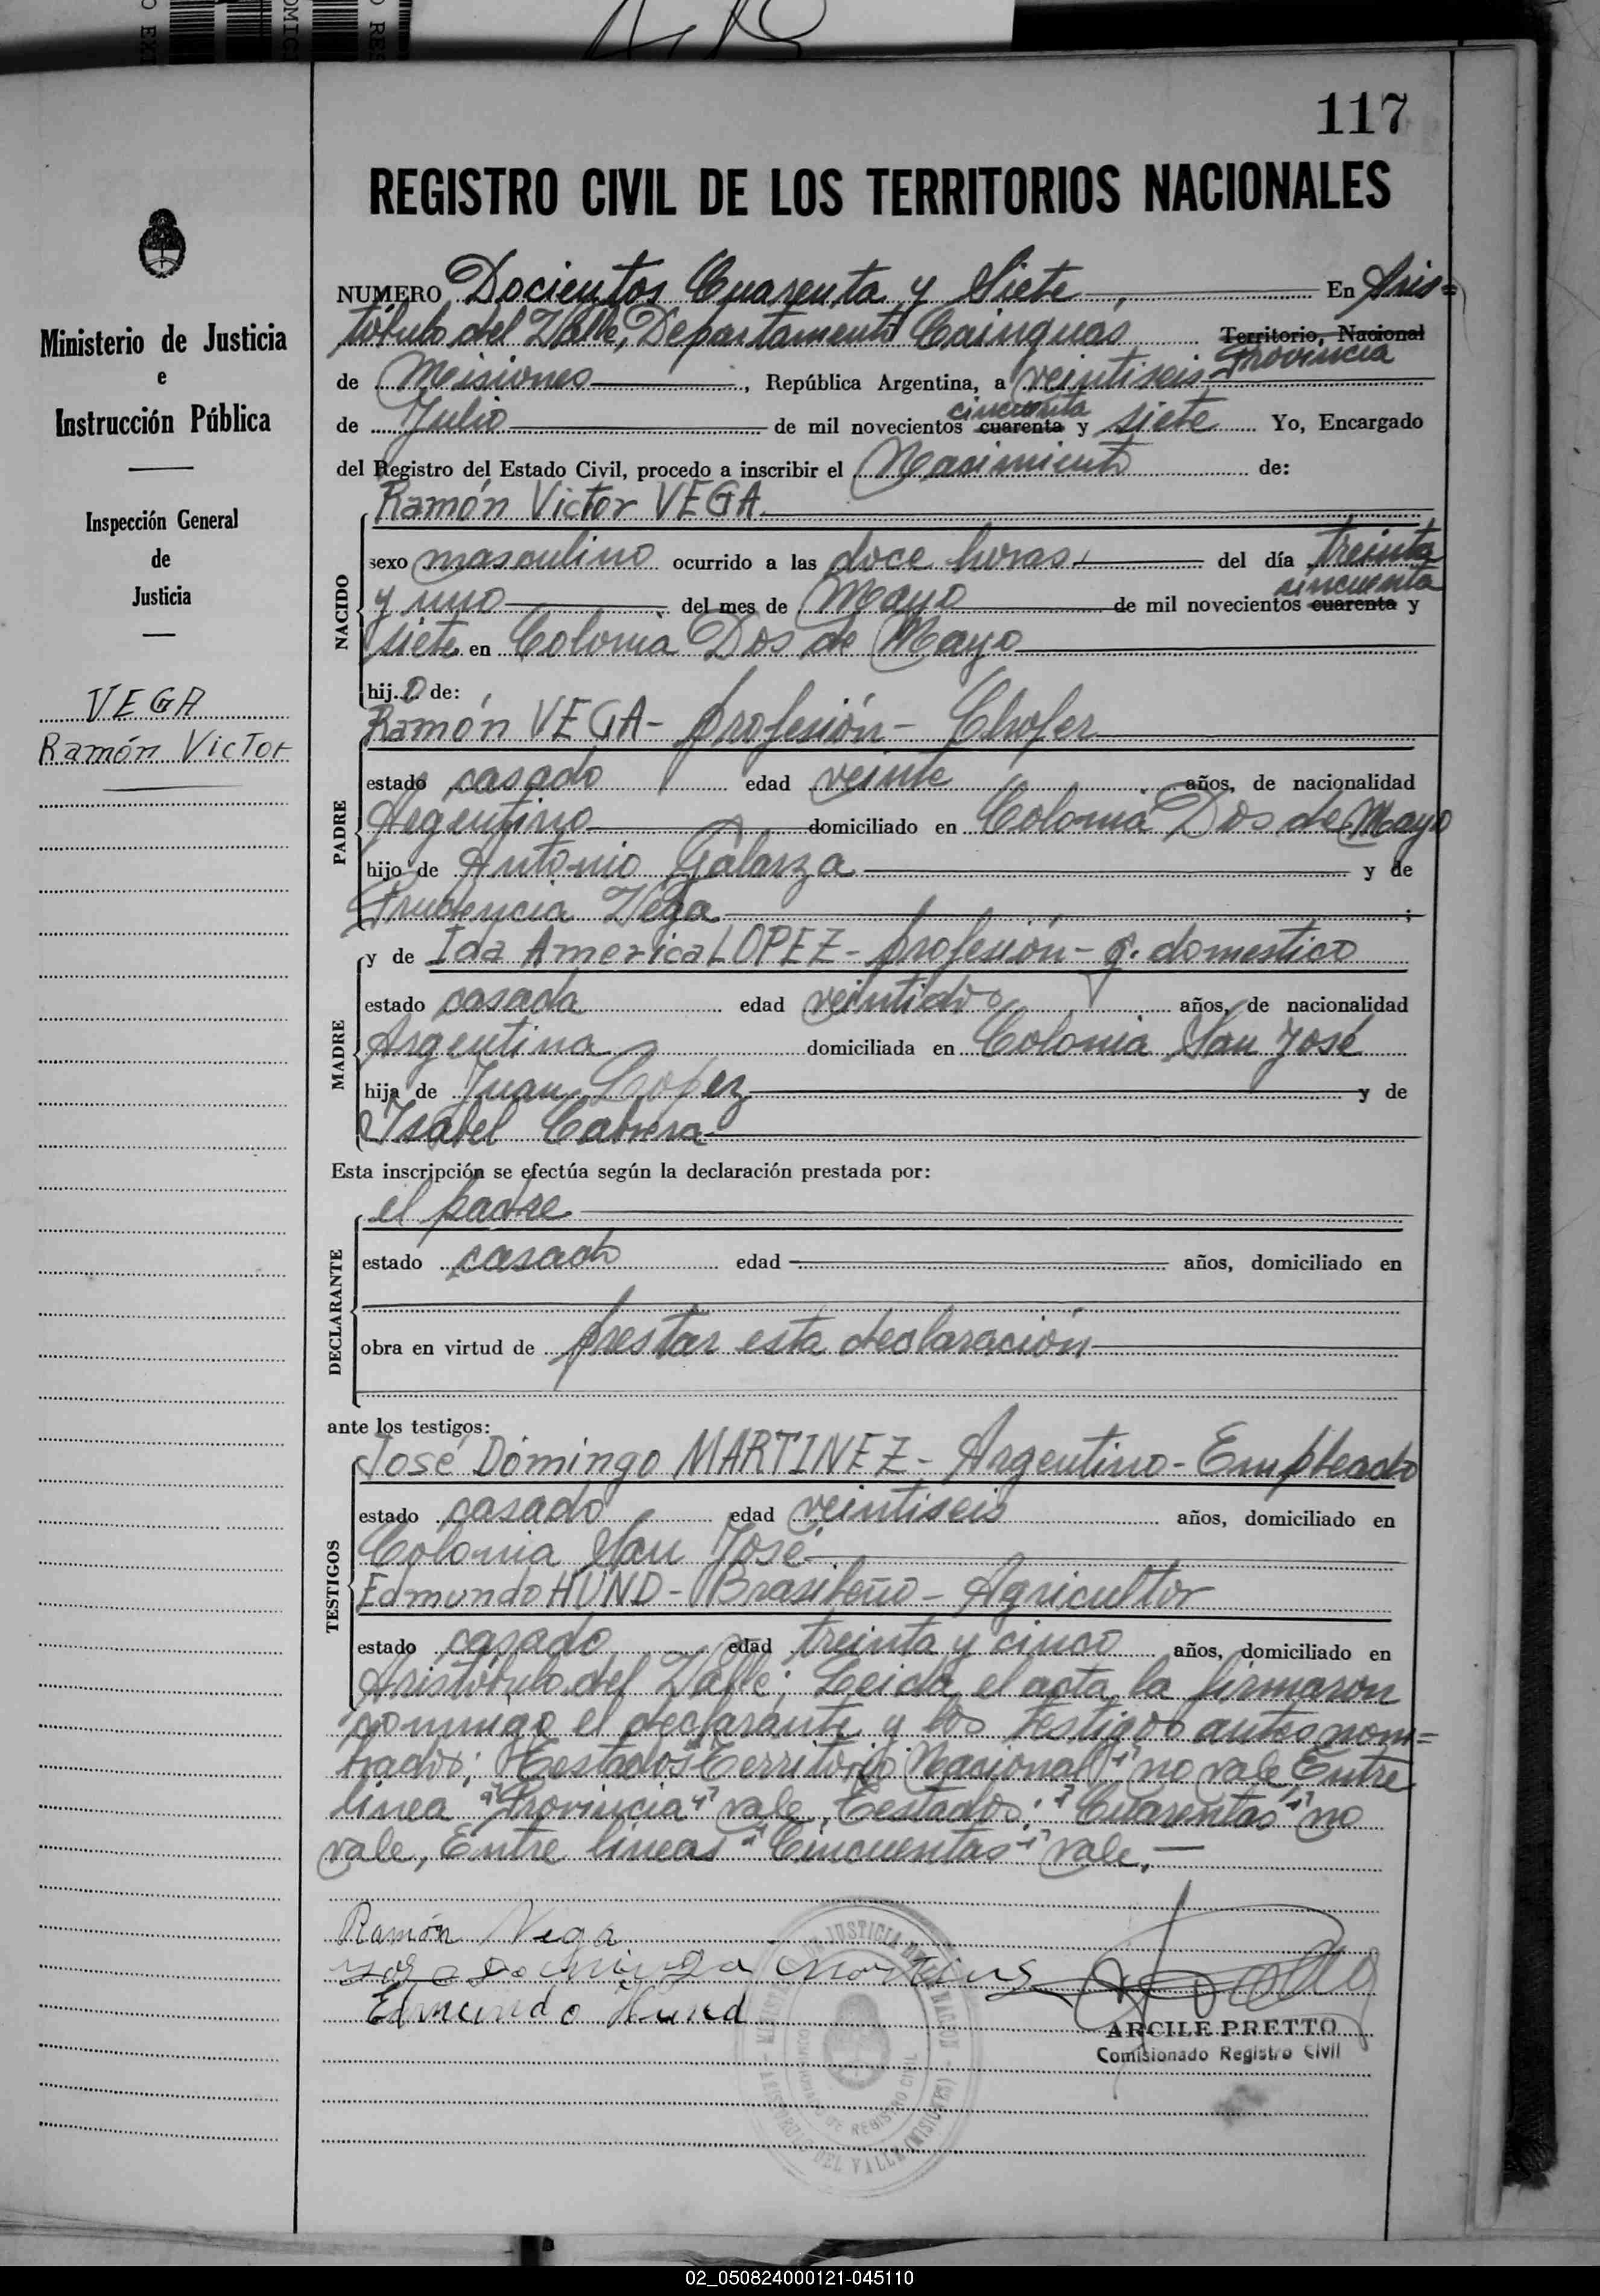 117
REGISTRO CIVIL DE LOS TERRITORIOS NACIONALES
Ministerio de Justicia
e
Instrucción Pública
Inspección General
de
Justicia
VEGA
Ramón Victor
NUMERO Docientos Cuarenta y Siete, En Aris=
tóbulo del Valle, Departamento Cainguás Territorio Nacional
Provincia
de Misiones, República Argentina, a veintiseis
de Julio de mil novecientos cuarenta cincuenta y siete Yo, Encargado
del Registro del Estado Civil, procedo a inscribir el Nacimiento de:
NACIDO
Ramón Victor VEGA
sexo masculino ocurrido a las doce horas del día treinta
y uno del mes de Mayo de mil novecientos cuarenta cincuenta y
siete en Colonia Dos de Mayo
hijo de:
PADRE
Ramón VEGA- profesión- Chofer
estado casado edad veinte años, de nacionalidad
Argentino domiciliado en Colonia Dos de Mayo
hijo de Antonio Galarza y de
Prudencia Vega;
MADRE
y de Ida America LOPEZ- profesión- q. domestico
estado casada edad veintidos años, de nacionalidad
Argentina domiciliada en Colonia San José
hija de Juan Lopez y de
Isabel Cabrera
Esta inscripción se efectúa según la declaración prestada por:
DECLARANTE
el padre
estado casado edad años, domiciliado en
obra en virtud de prestar esta declaración
ante los testigos:
TESTIGOS
José Domingo MARTINEZ- Argentino- Empleado
estado casado edad veintiseis años, domiciliado en
Colonia San José
Edmundo HUND- Brasileño- Agricultor
estado casado edad treinta y cinco años, domiciliado en
Aristóbulo del Valle; Leida el acta la firmaron
conmigo el declarante y los testigos antes nom=
brados; Testados "Territorio Nacional" no vale, Entre
linea "Provincia" vale, Testados: "Cuarentas" no
vale, Entre lineas "Cincuentas" vale,-
Ramón Vega
Edmundo Hund
ARCILE PRETTO
Comisionado Registro Civil
02_050824000121-045110